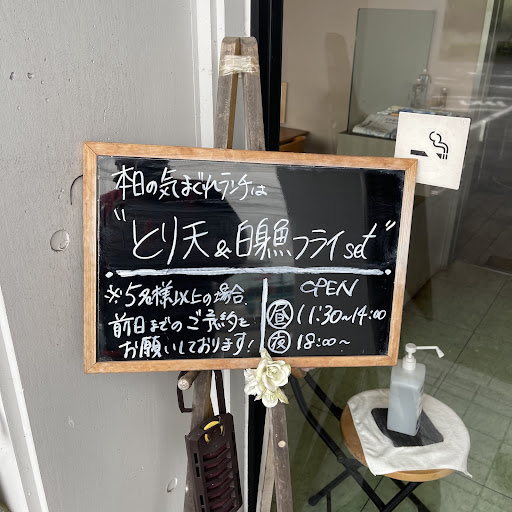 本日の気まぐれランチは
"とり天&白身魚フライset"
※5名様以上の場合
前日までのご予約を
お願いしております!
OPEN
昼 11:30~14:00
夜 18:00~